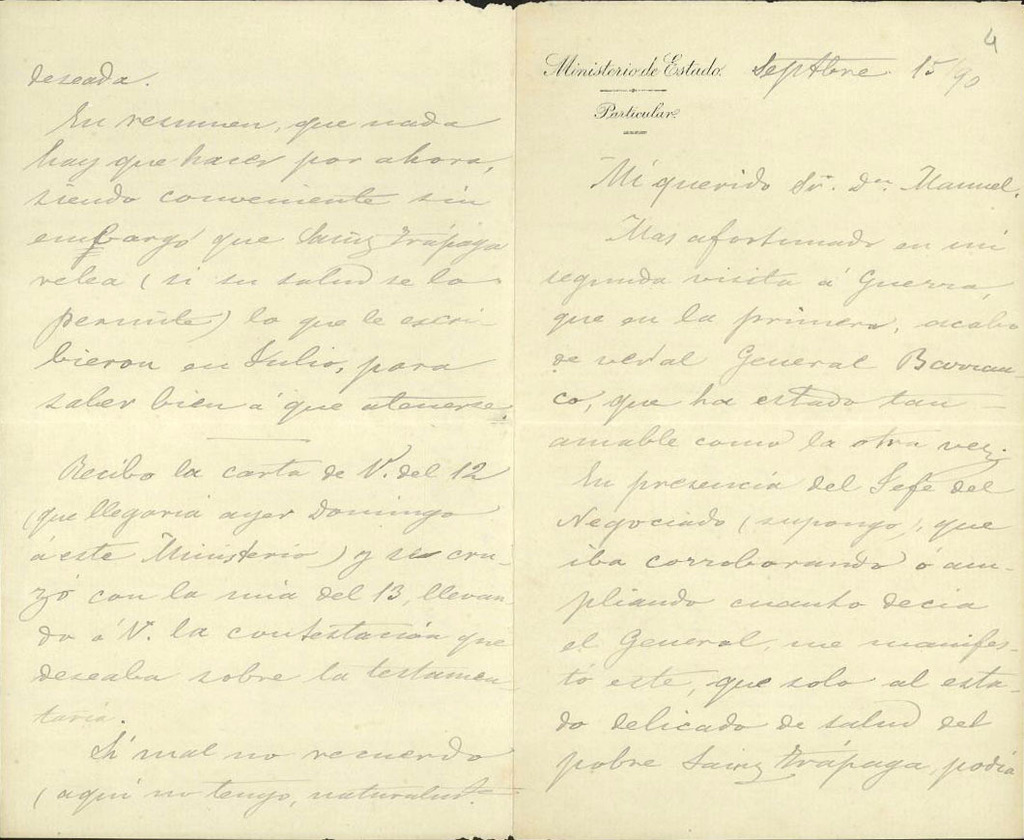 4
Ministerio de Estado. Septbre 15/90
Particular.
Mi querido Sr. Dn. Manuel.
Mas afortunado en mi
segunda visita á Guerra,
que en la primera, acabo
de ver al General Barran-
co, que ha estado tan
amable como la otra vez.
En presencia del Gefe del
Negociado (supongo), que
iba corroborando ó am-
pliando cuanto decia
el General, me manifes-
tó este, que solo al esta-
do delicado de salud del
pobre Sainz Trápaga, podia
deseada.
En resumen, que nada
hay que hacer por ahora,
siendo conveniente sin
embargo que Sainz Trápaga
relea (si su salud se lo
permite) lo que le escri-
bieron en Julio, para
saber bien á que atenerse.
Recibo la carta de V. del 12
(que llegaria ayer Domingo
á este Ministerio) y se cru-
zó con la mia del 13, llevan-
do á V. la contestación que
deseaba sobre la testamen-
taria.
Si mal no recuerdo
(aqui no tengo, naturalmte